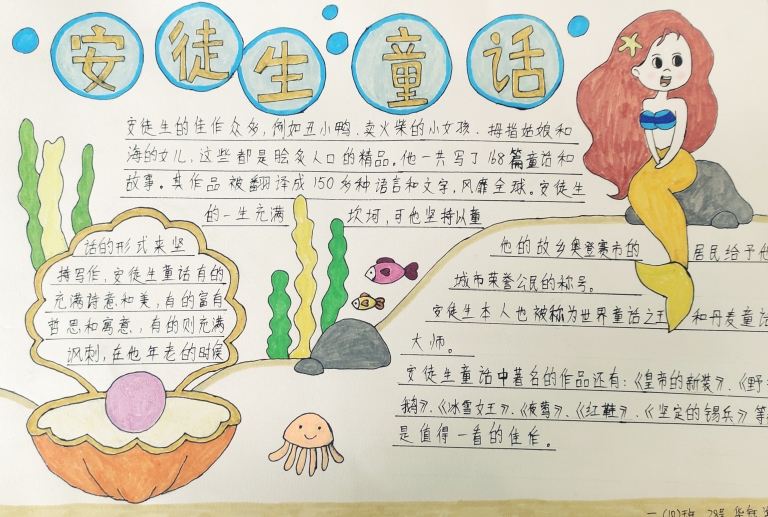 安徒生童话
安徒生的佳作众多,例如丑小鸭、卖火柴的小女孩、拇指姑娘和
海的女儿,这些都是脍炙人口的精品。他一共写了168篇童话和
故事。其作品被翻译成150多种语言和文字,风靡全球。安徒生
的一生充满坎坷,可他坚持以童
话的形式来坚
持写作,安徒生童话有的
充满诗意和美,有的富有
哲思和寓意,有的则充满
讽刺,在他年老的时候
他的故乡奥登赛市的居民给予他
城市荣誉公民的称号。
安徒生本人也被称为世界童话之王和丹麦童话
大师。
安徒生童话中著名的作品还有:《皇帝的新装》、《野
鹅》、《冰雪女王》、《夜莺》、《红鞋》、《坚定的锡兵》等
是值得一看的佳作。
一(10)班 28号